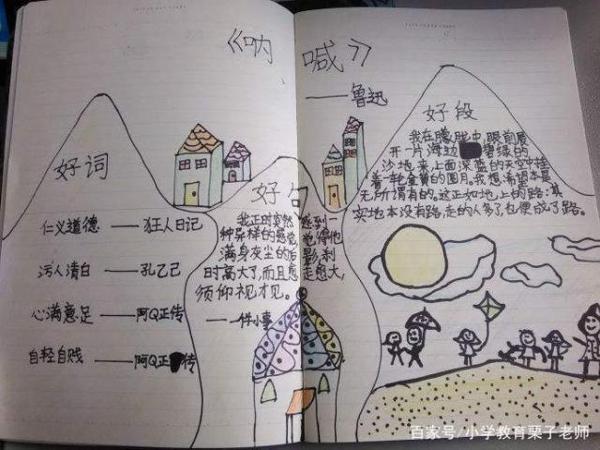 《呐喊》
——鲁迅
好词
仁义道德——狂人日记
污人清白——孔乙己
心满意足——阿Q正传
自轻自贱——阿Q正传
好句
我这时突然感到一
种异样的感觉,觉得他
满身灰尘的后影,刹
时高大了,而且愈走愈大,
须仰视才见。
——一件小事
好段
我在朦胧中,眼前展
开一片海边碧绿的
沙地来,上面深蓝的天空中挂
着一轮金黄的圆月。我想:希望本是
无所谓有的。这正如地上的路:其
实地本没有路,走的人多了,也便成了路。
百家号/小学教育栗子老师